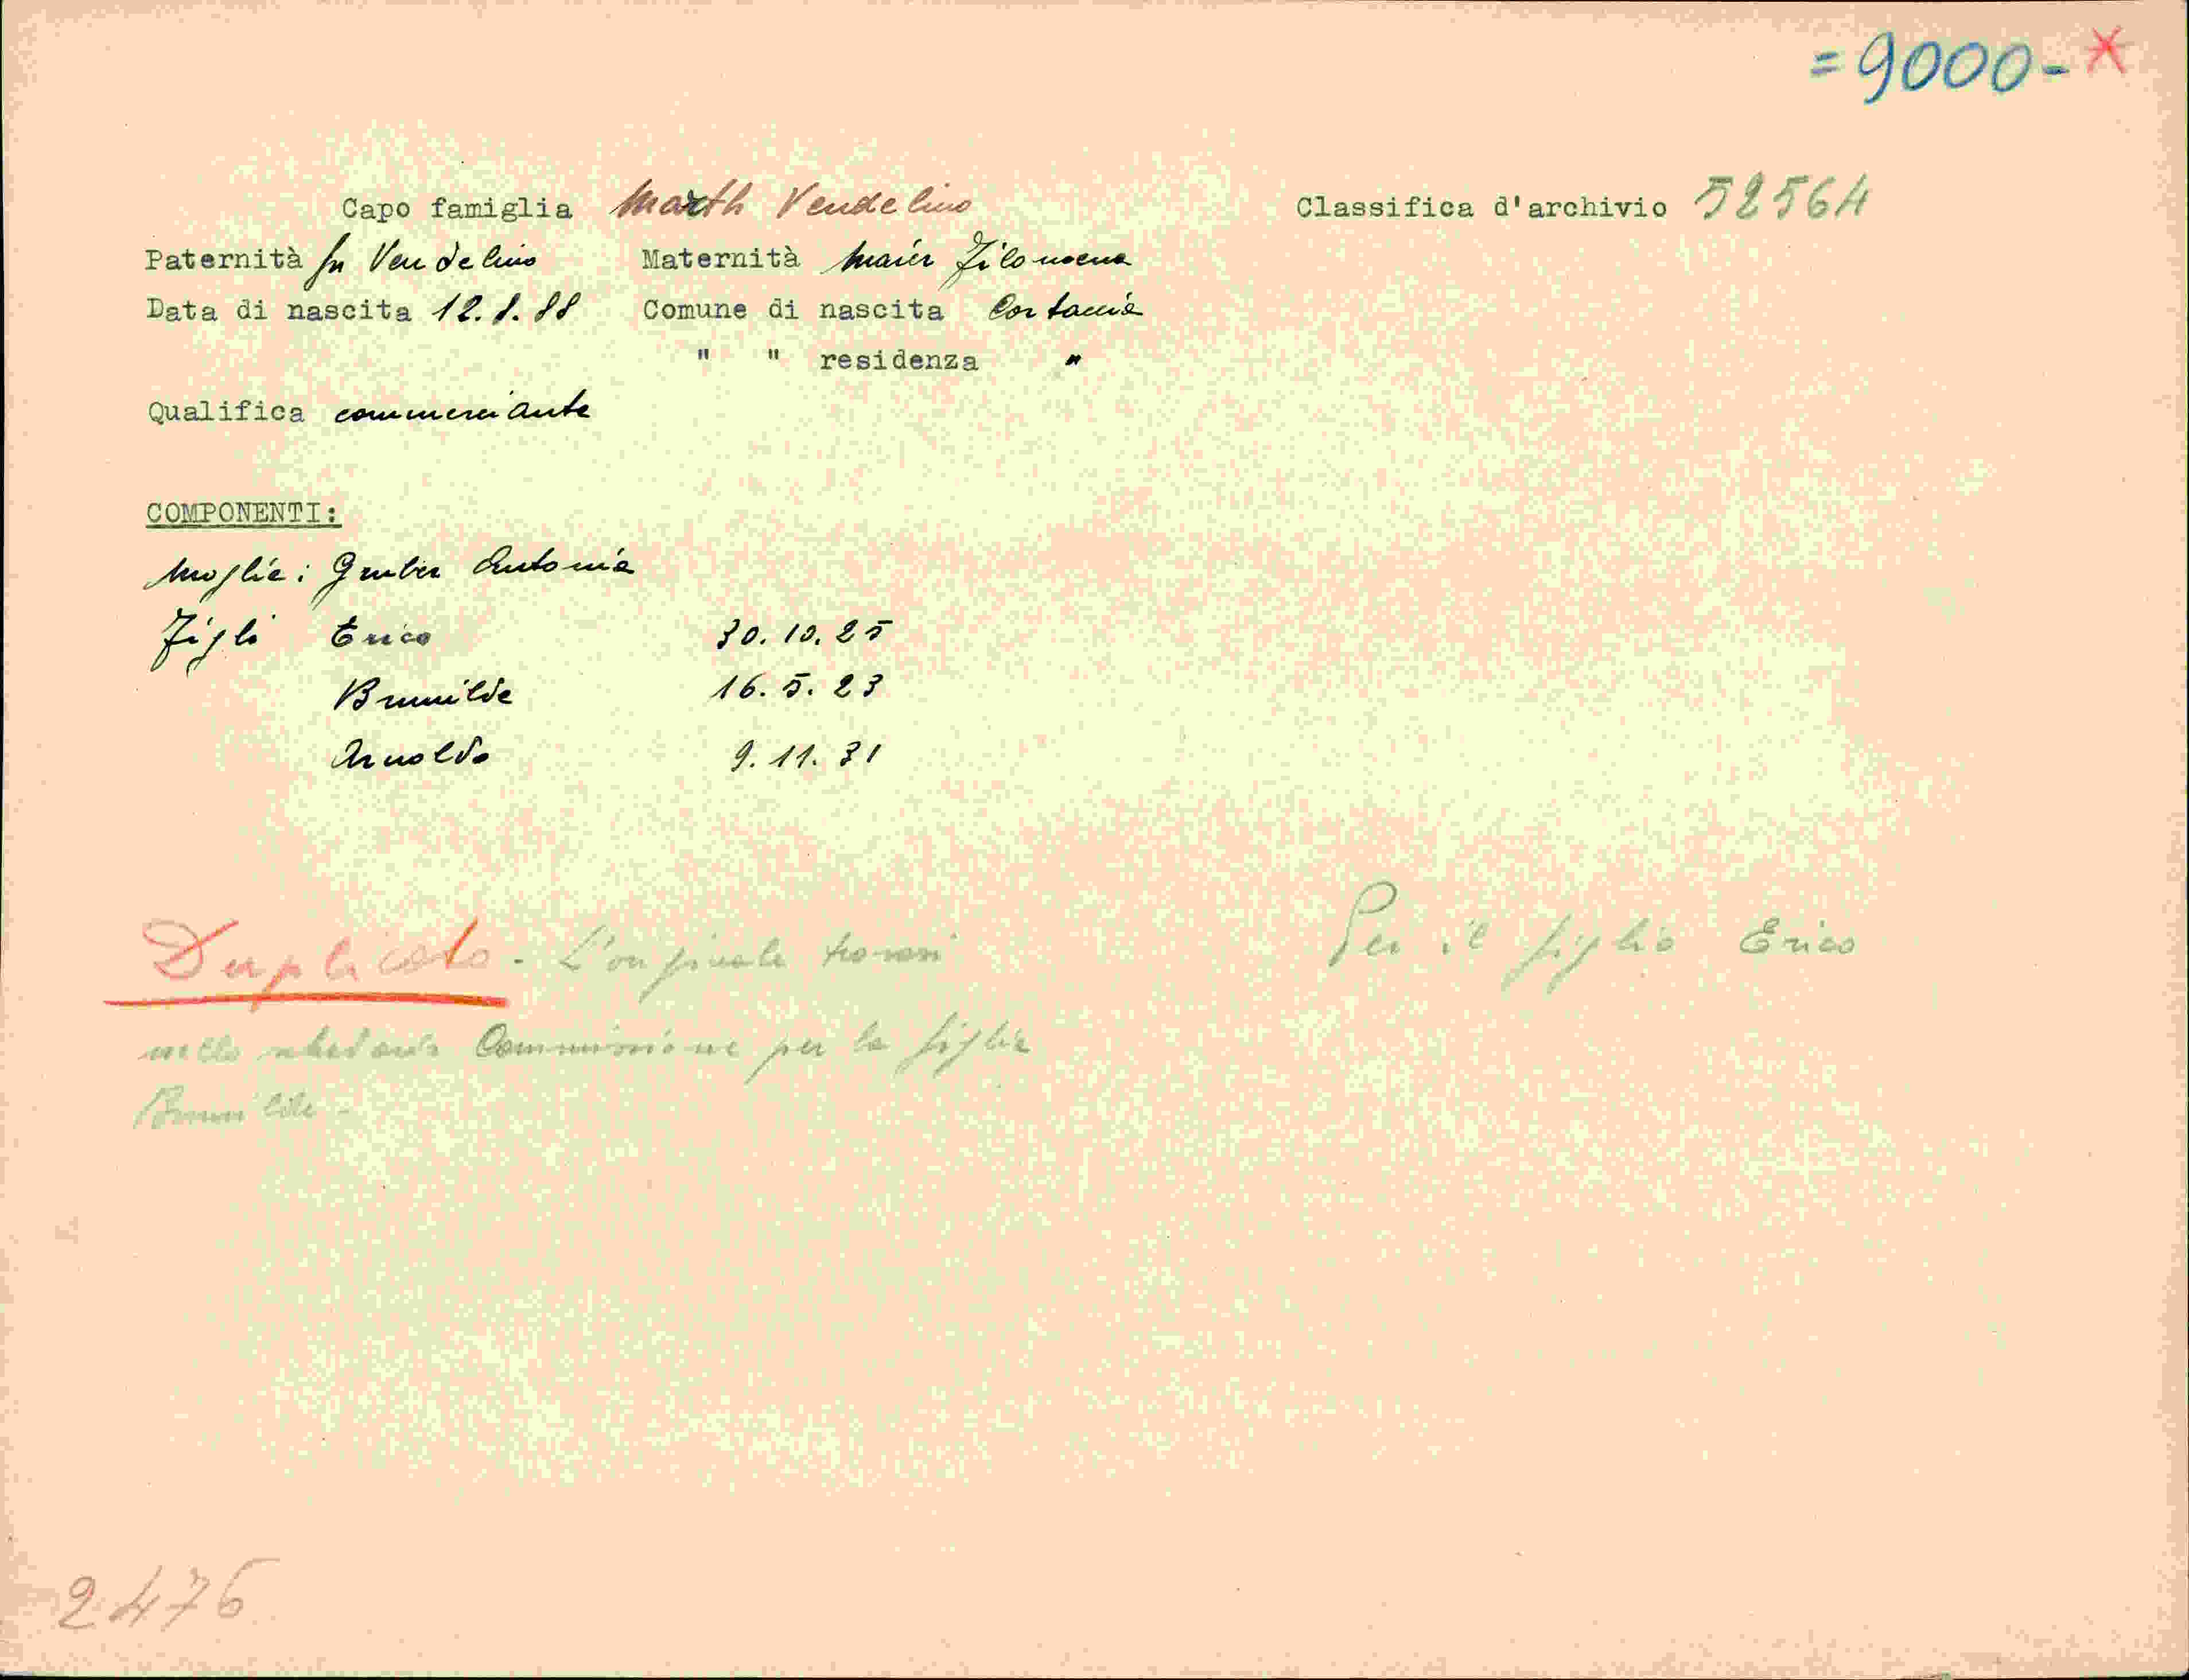 =9000-
Capo famiglia Marth Vendelino Classifica d'archivio 52564
Paternità fu Vendelino Maternità Maier Filomena
Data di nascita 12.8.88 Comune di nascita Cortaccia
" " residenza "
Qualifica commerciante
COMPONENTI:
Moglie: Gruber Antonia
Figli Erico 30.10.25
Brunilde 16.5.23
Arnoldo 9.11.31
Duplicato - L'originale trovasi Per il figlio Erico
nello schedario Commissione per la figlia
Brunilde -
2476